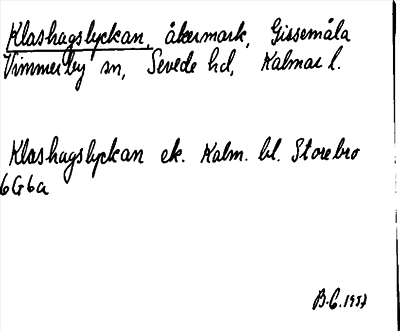 Klashagslyckan, åkermark, Gissemåla
Vimmerby sn, Sevede hd, Kalmar l.
Klashagslyckan ek. Kalm. bl. Storebro
6G6a
B.C. 1957